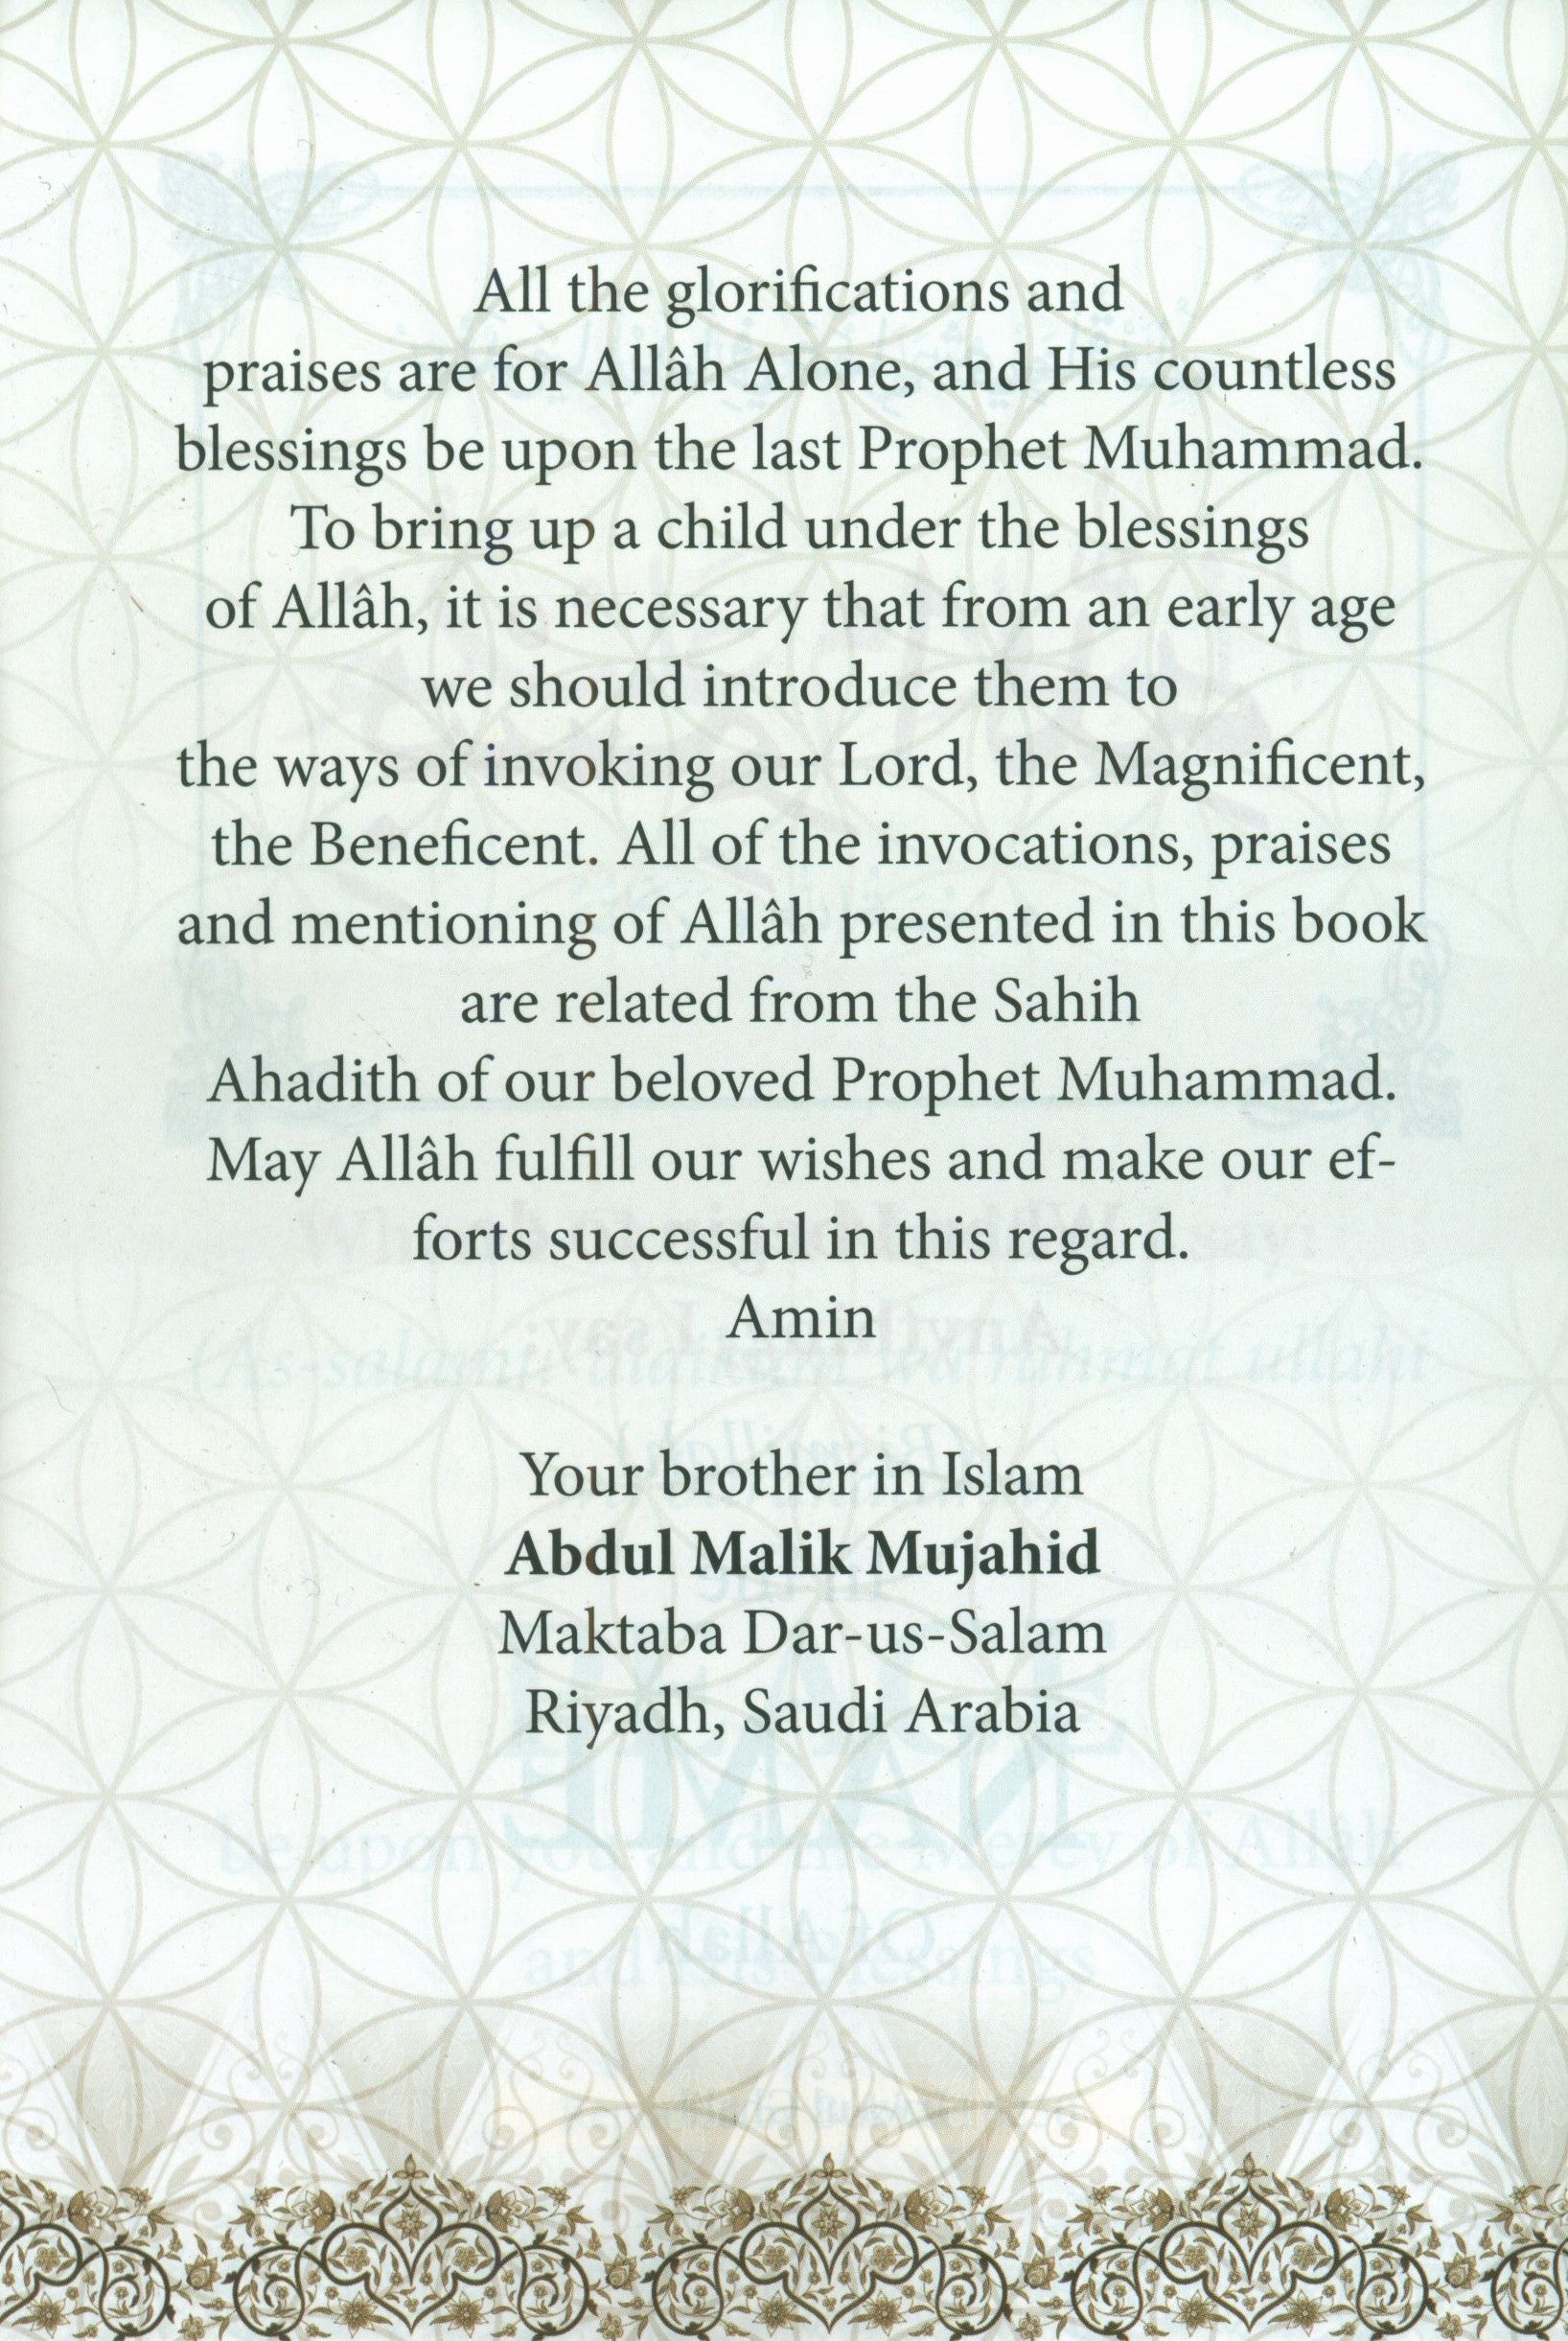 All the glorifications and
praises are for Allâh Alone, and His countless
blessings be upon the last Prophet Muhammad.
To bring up a child under the blessings
of Allâh, it is necessary that from an early age
we should introduce them to
the ways of invoking our Lord, the Magnificent,
the Beneficent. All of the invocations, praises
and mentioning of Allâh presented in this book
are related from the Sahih
Ahadith of our beloved Prophet Muhammad.
May Allâh fulfill our wishes and make our ef-
forts successful in this regard.
Amin
Your brother in Islam
Abdul Malik Mujahid
Maktaba Dar-us-Salam
Riyadh, Saudi Arabia